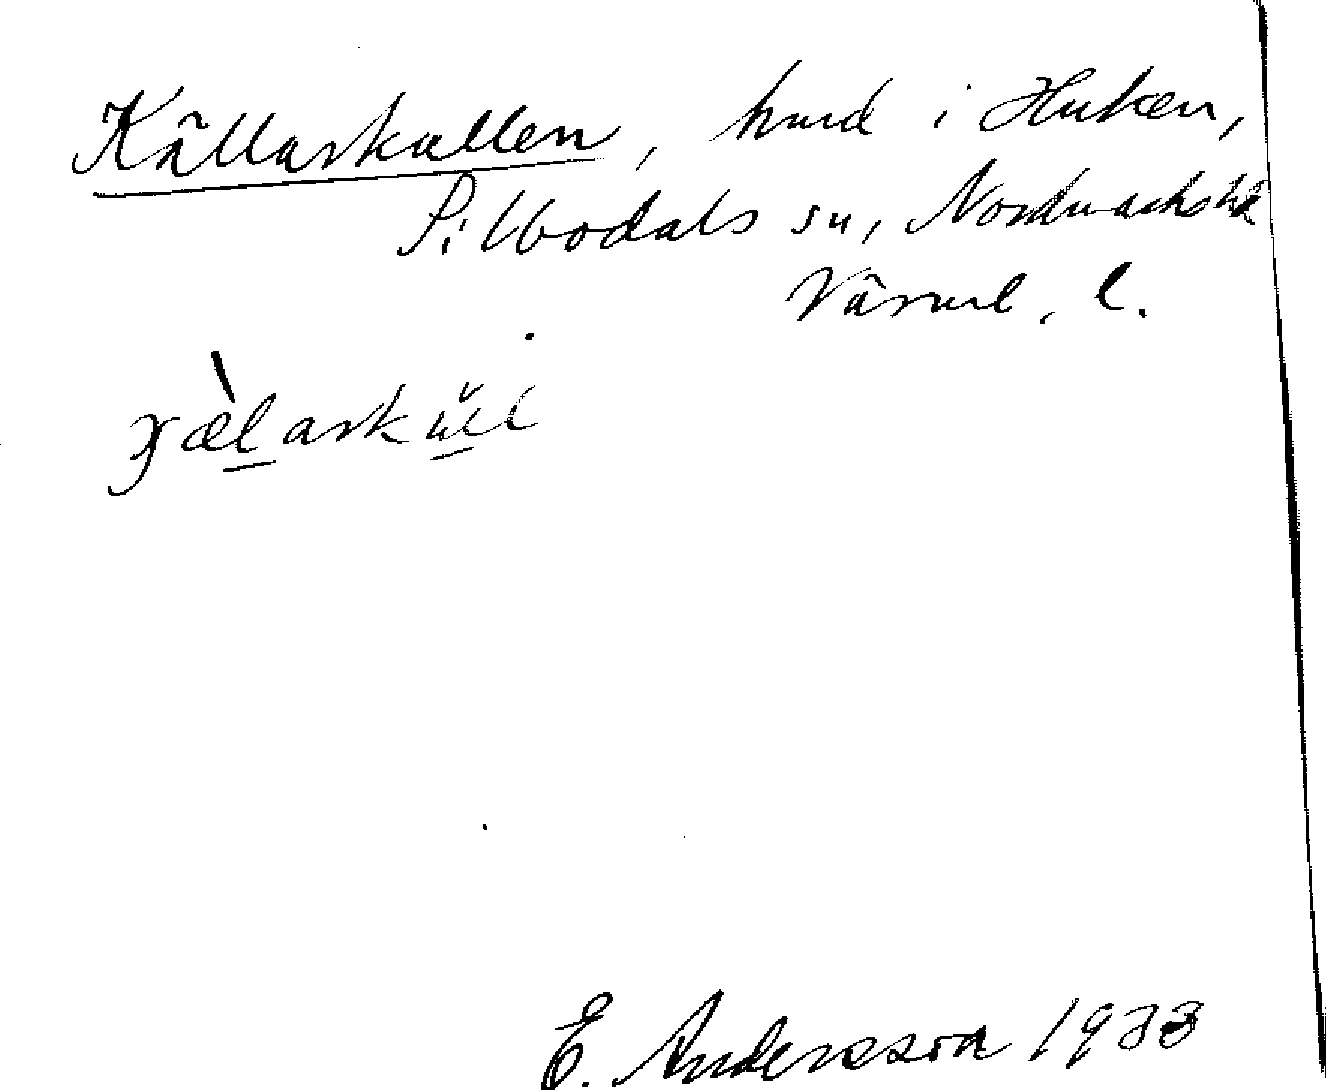 Källarkullen, hmd i Huken,
Silbodals sn, Nordmarks hd
Värml. l.
E. Andersson 1933